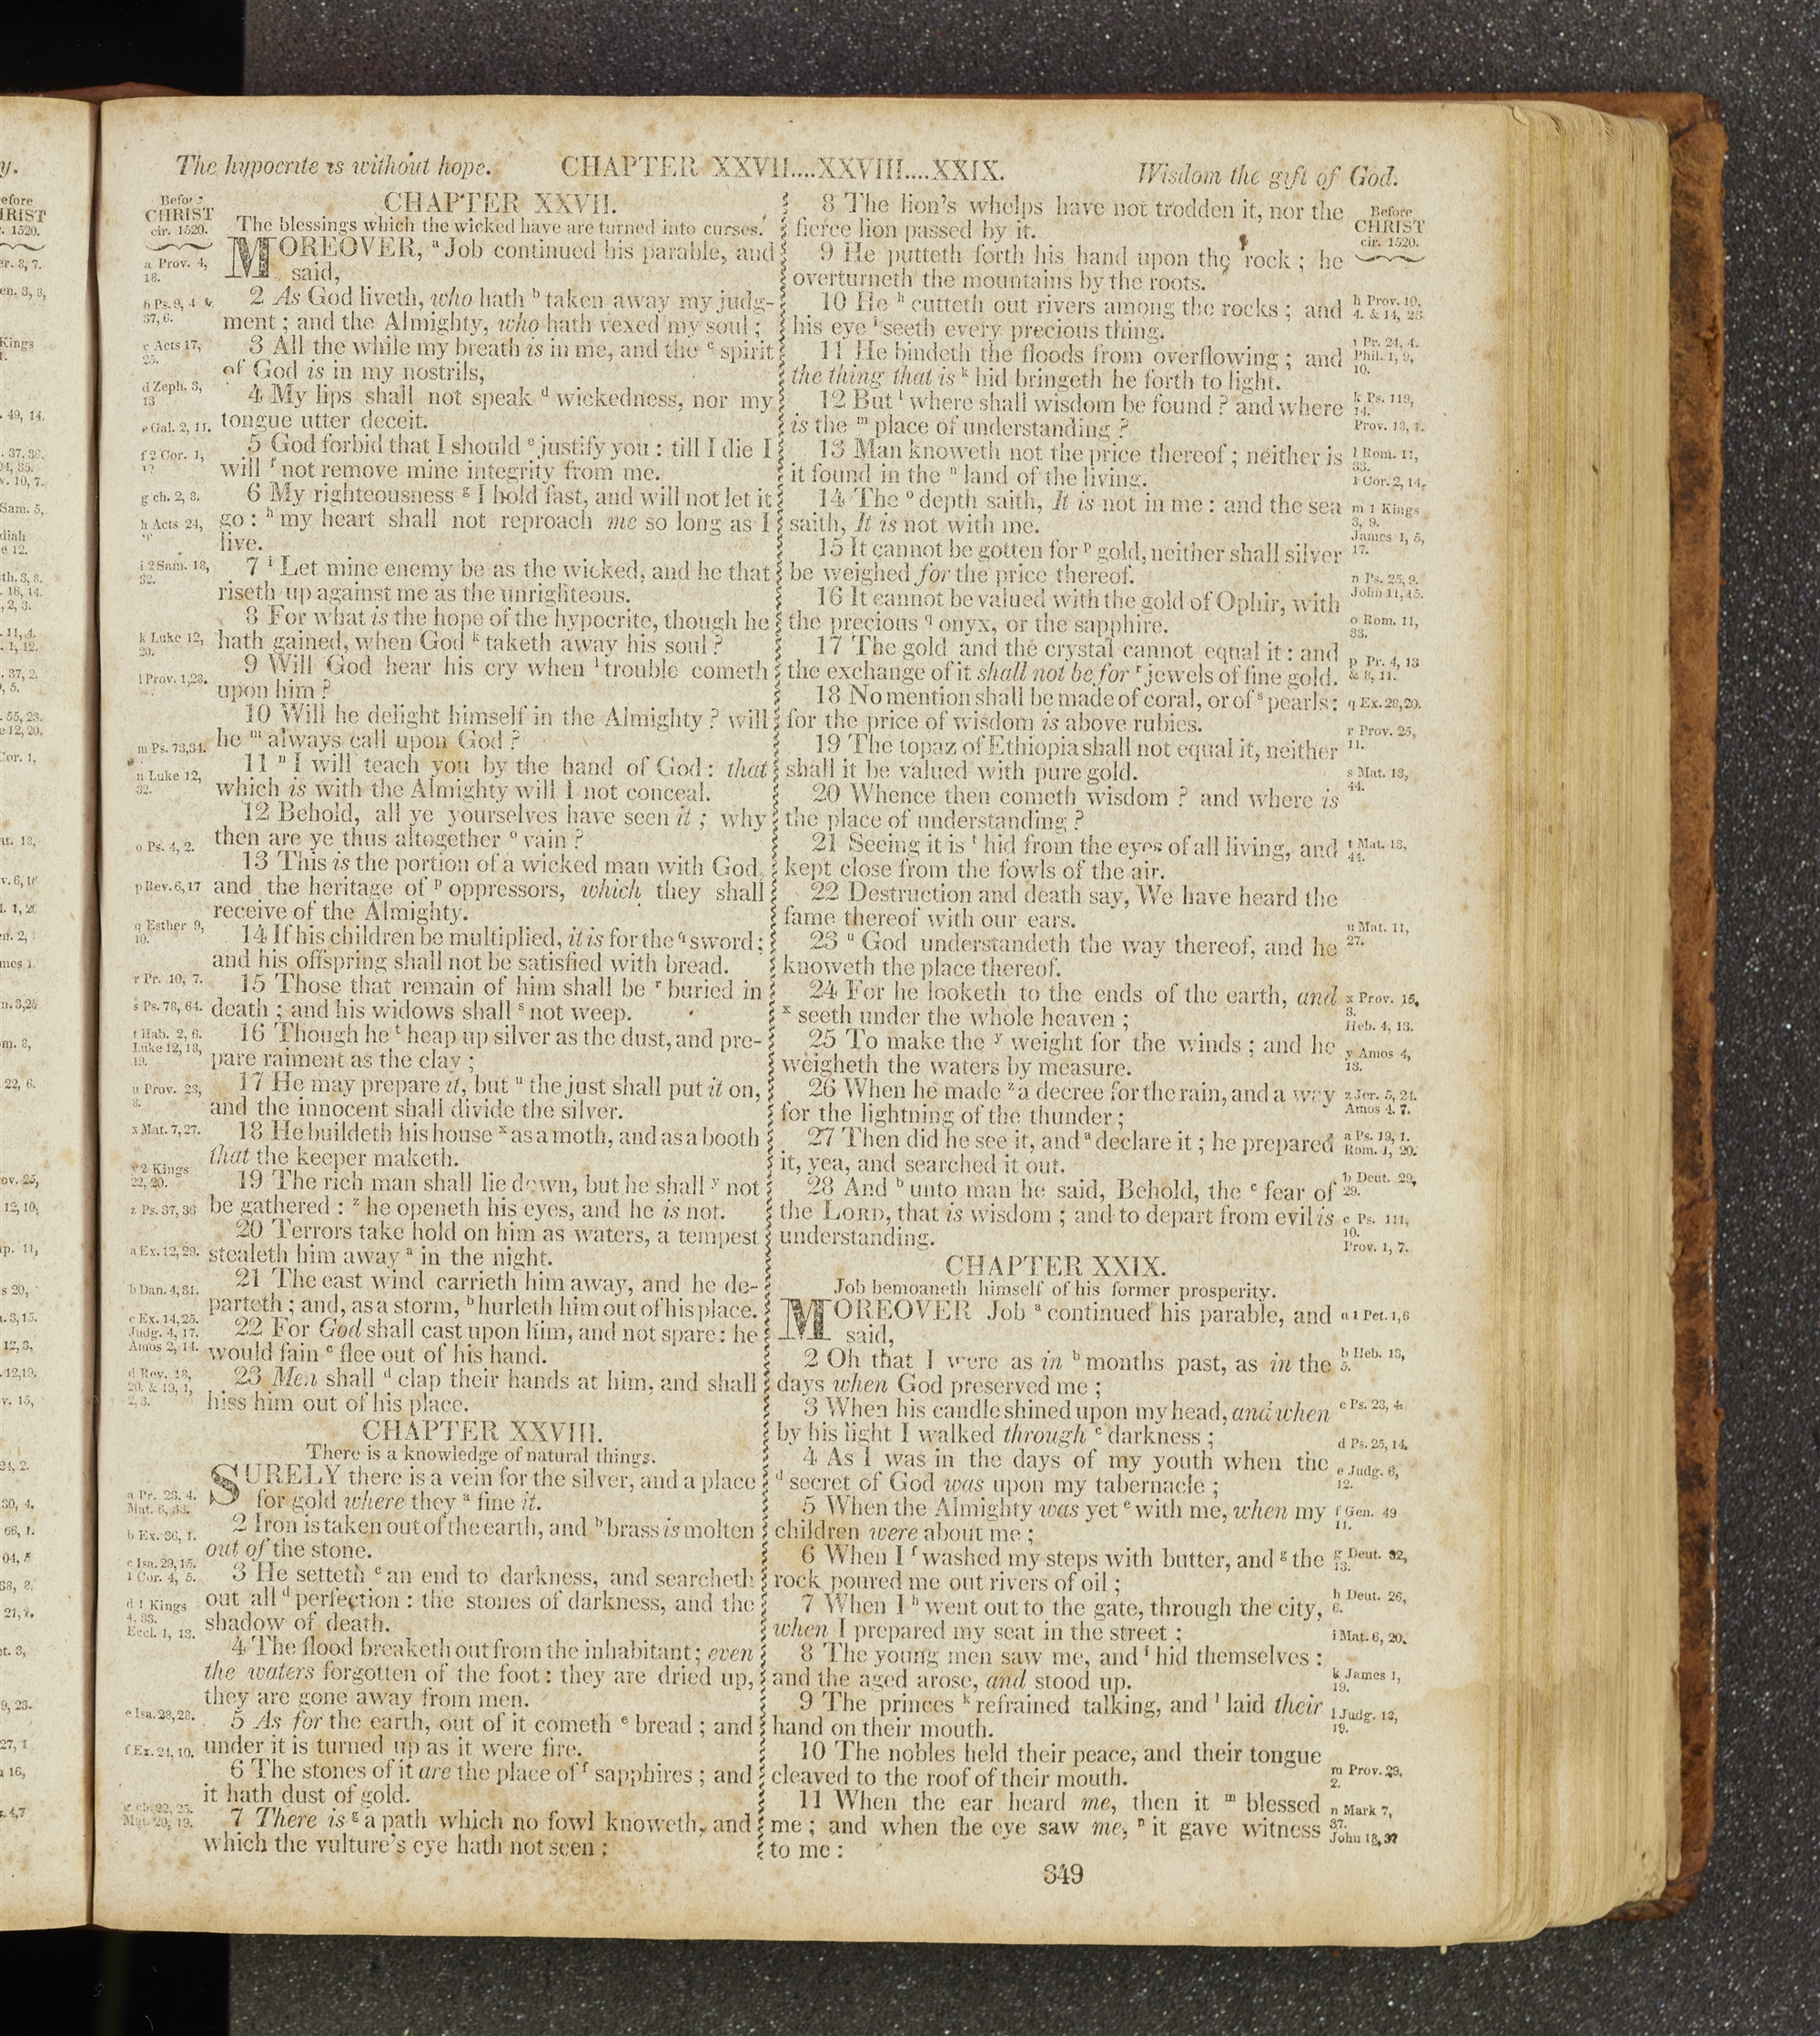 The hypocrite is without hope. CHAPTER XXVII....XXVIII....XXIX. Wisdom the gift of God.
Before
CHRIST
cir. 1520.
a Prov. 4,
18.
b Ps. 9, 4 &
37, 6.
c Acts 17,
25.
d Zeph. 3,
13
e Gal. 2, 11.
f 2 Cor. 1,
12
g ch. 2, 3.
h Acts 24,
i 2 Sam. 18,
32.
k Luke 12,
20.
l Prov. 1,28.
m Ps. 73,34.
n Luke 12,
32.
o Ps. 4, 2.
p Rev. 6, 17
q Esther 9,
10.
r Pr. 10, 7.
s Ps. 78, 64.
t Hab. 2, 6.
Luke 12, 18,
19.
u Prov. 28,
8.
x Mat. 7, 27.
y 2 Kings
22, 20.
z Ps. 37, 36
a Ex. 12, 29.
b Dan. 4, 31.
c Ex. 14, 25.
Judg. 4, 17.
Amos 2, 14.
d Rev. 18,
20. & 19, 1,
2, 3.
a Pr. 23. 4.
Mat. 6, 33.
b Ex. 36, 1.
c Isa. 29, 15.
1 Cor. 4, 5.
d 1 Kings
4, 33.
Eccl. 1, 13.
e Isa. 28, 28.
f Ex. 24, 10.
g ch. 22, 25.
Mat. 20, 19.
CHAPTER XXVII.
The blessings which the wicked have are turned into curses.
MOREOVER, a Job continued his parable, and
said,
2 As God liveth, who hath b taken away my judg-
ment; and the Almighty, who hath vexed my soul;
3 All the while my breath is in me, and the c spirit
of God is in my nostrils,
4 My lips shall not speak d wickedness, nor my
tongue utter deceit.
5 God forbid that I should e justify you: till I die I
will f not remove mine integrity from me.
6 My righteousness g I hold fast, and will not let it
go: h my heart shall not reproach me so long as I
live.
7 i Let mine enemy be as the wicked, and he that
riseth up against me as the unrighteous.
8 For what is the hope of the hypocrite, though he
hath gained, when God k taketh away his soul?
9 Will God hear his cry when l trouble cometh
upon him?
10 Will he delight himself in the Almighty? will
he m always call upon God?
11 n I will teach you by the hand of God: that
which is with the Almighty will I not conceal.
12 Behold, all ye yourselves have seen it; why
then are ye thus altogether o vain?
13 This is the portion of a wicked man with God,
and the heritage of p oppressors, which they shall
receive of the Almighty.
14 If his children be multiplied, it is for the q sword;
and his offspring shall not be satisfied with bread.
15 Those that remain of him shall be r buried in
death; and his widows shall s not weep.
16 Though he t heap up silver as the dust, and pre-
pare raiment as the clay;
17 He may prepare it, but u the just shall put it on,
and the innocent shall divide the silver.
18 He buildeth his house x as a moth, and as a booth
that the keeper maketh.
19 The rich man shall lie down, but he shall y not
be gathered: z he openeth his eyes, and he is not.
20 Terrors take hold on him as waters, a tempest
stealeth him away a in the night.
21 The east wind carrieth him away, and he de-
parteth; and, as a storm, b hurleth him out of his place.
22 For God shall cast upon him, and not spare: he
would fain c flee out of his hand.
23 Men shall d clap their hands at him, and shall
hiss him out of his place.
CHAPTER XXVIII.
There is a knowledge of natural things.
SURELY there is a vein for the silver, and a place
for gold where they a fine it.
2 Iron is taken out of the earth, and b brass is molten
out of the stone.
3 He setteth c an end to darkness, and searcheth
out all d perfection: the stones of darkness, and the
shadow of death.
4 The flood breaketh out from the inhabitant; even
the waters forgotten of the foot: they are dried up,
they are gone away from men.
5 As for the earth, out of it cometh e bread; and
under it is turned up as it were fire.
6 The stones of it are the place of f sapphires; and
it hath dust of gold.
7 There is g a path which no fowl knoweth, and
which the vulture's eye hath not seen:
8 The lion's whelps have not trodden it, nor the
fierce lion passed by it.
9 He putteth forth his hand upon the rock; he
overturneth the mountains by the roots.
10 He h cutteth out rivers among the rocks; and
his eye i seeth every precious thing.
11 He bindeth the floods from overflowing; and
the thing that is k hid bringeth he forth to light.
12 But l where shall wisdom be found? and where
is the m place of understanding?
13 Man knoweth not the price thereof; neither is
it found in the n land of the living.
14 The o depth saith, It is not in me: and the sea
saith, It is not with me.
15 It cannot be gotten for p gold, neither shall silver
be weighed for the price thereof.
16 It cannot be valued with the gold of Ophir, with
the precious q onyx, or the sapphire.
17 The gold and the crystal cannot equal it: and
the exchange of it shall not be for r jewels of fine gold.
18 No mention shall be made of coral, or of s pearls:
for the price of wisdom is above rubies.
19 The topaz of Ethiopia shall not equal it, neither
shall it be valued with pure gold.
20 Whence then cometh wisdom? and where is
the place of understanding?
21 Seeing it is t hid from the eyes of all living, and
kept close from the fowls of the air.
22 Destruction and death say, We have heard the
fame thereof with our ears.
23 u God understandeth the way thereof, and he
knoweth the place thereof.
24 For he looketh to the ends of the earth, and
x seeth under the whole heaven;
25 To make the y weight for the winds; and he
weigheth the waters by measure.
26 When he made z a decree for the rain, and a way
for the lightning of the thunder;
27 Then did he see it, and a declare it; he prepared
it, yea, and searched it out.
28 And b unto man he said, Behold, the c fear of
the LORD, that is wisdom; and to depart from evil is
understanding.
CHAPTER XXIX.
Job bemoaneth himself of his former prosperity.
MOREOVER Job a continued his parable, and
said,
2 Oh that I were as in b months past, as in the
days when God preserved me;
3 When his candle shined upon my head, and when
by his light I walked through c darkness;
4 As I was in the days of my youth when the
d secret of God was upon my tabernacle;
5 When the Almighty was yet e with me, when my
children were about me;
6 When I f washed my steps with butter, and g the
rock poured me out rivers of oil;
7 When I h went out to the gate, through the city,
when I prepared my seat in the street;
8 The young men saw me, and i hid themselves:
and the aged arose, and stood up.
9 The princes k refrained talking, and l laid their
hand on their mouth.
10 The nobles held their peace, and their tongue
cleaved to the roof of their mouth.
11 When the ear heard me, then it m blessed
me; and when the eye saw me, n it gave witness
to me:
Before
CHRIST
cir. 1520.
h Prov. 10,
4. & 14, 23.
i Pr. 24, 4.
Phil. 1, 9,
10.
k Ps. 119,
14.
Prov. 13, 1.
l Rom. 11,
33.
1 Cor. 2, 14.
m 1 Kings
3, 9.
James 1, 5,
17.
n Ps. 25, 9.
John 11, 45.
o Rom. 11,
33.
p Pr. 4, 13
& 8, 11.
q Ex. 28, 20.
r Prov. 25,
11.
s Mat. 13,
44.
t Mat. 13,
44.
u Mat. 11,
27.
x Prov. 15,
3.
Heb. 4, 13.
y Amos 4,
13.
z Jer. 5, 24.
Amos 4. 7.
a Ps. 19, 1.
Rom. 1, 20.
b Deut. 29,
29.
c Ps. 111,
10.
Prov. 1, 7.
a 1 Pet. 1, 6
b Heb. 13,
5.
c Ps. 23, 4
d Ps. 25, 14.
e Judg. 6,
12.
f Gen. 49
11.
g Deut. 32,
13.
h Deut. 26,
6.
i Mat. 6, 20.
k James 1,
19.
l Judg. 18,
19.
m Prov. 29,
2.
n Mark 7,
37.
John 18, 37
349